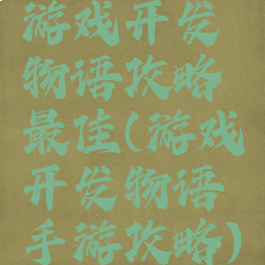 游戏开发
物语攻略
最佳(游戏
开发物语
手游攻略)